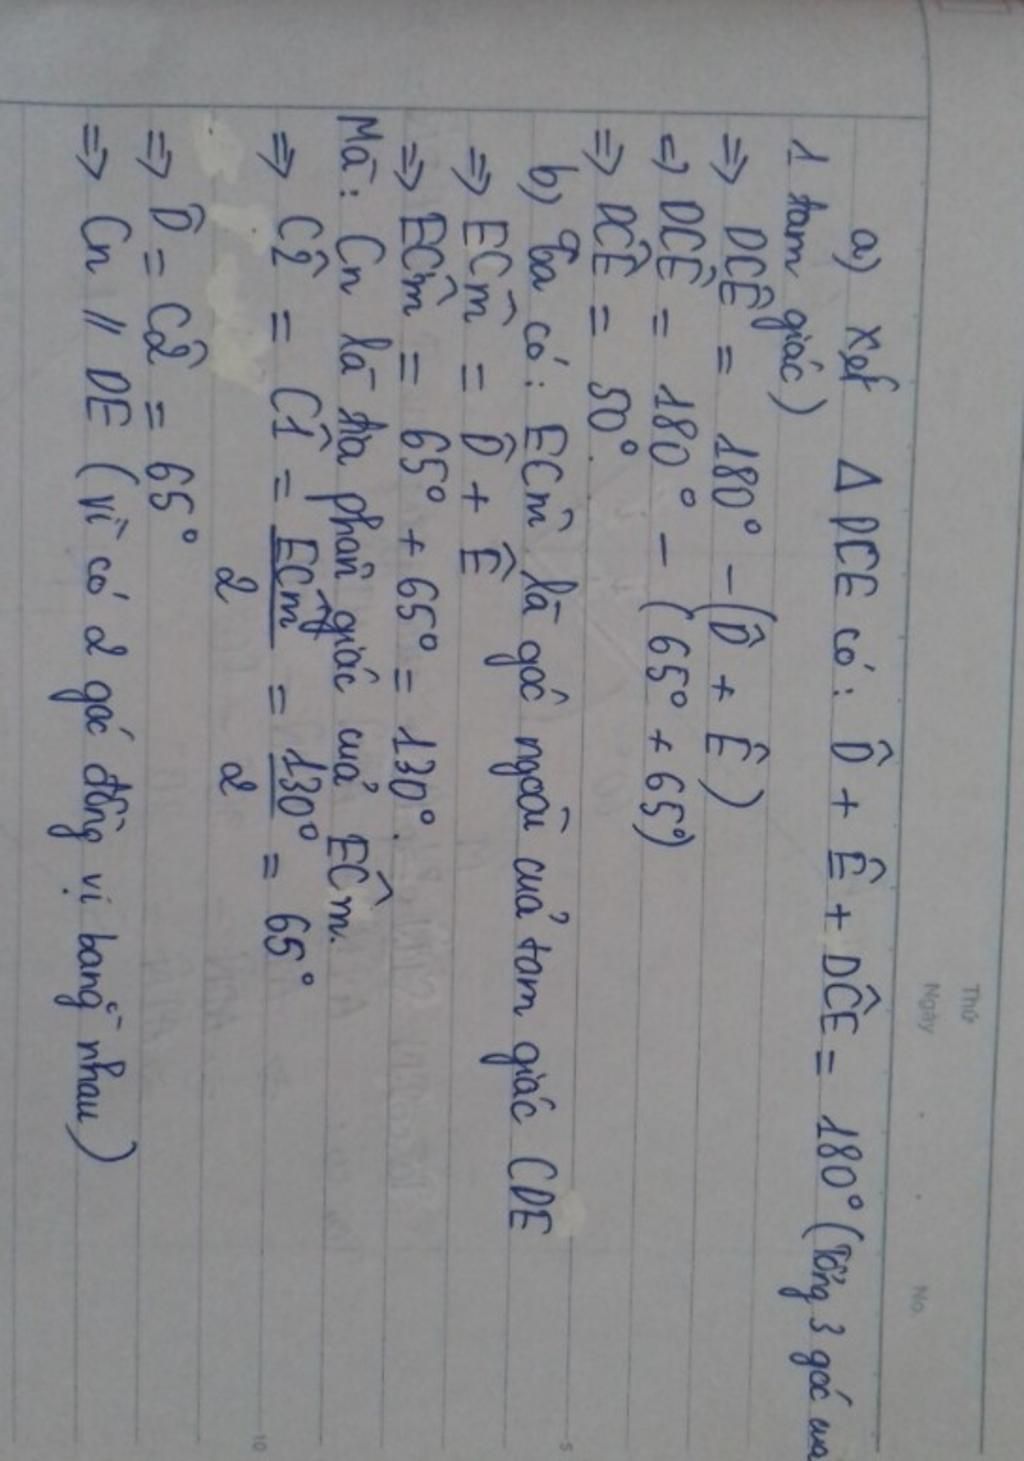 Thứ
Ngày
No.
a) Xét Δ DCE có: D̂ + Ê + DĈE = 180° (Tổng 3 góc của
1 tam giác)
=> DĈE = 180° - (D̂ + Ê)
=> DĈE = 180° - (65° + 65°)
=> DĈE = 50°.
b) Ta có: EĈm là góc ngoài của tam giác CDE
=> EĈm = D̂ + Ê
=> EĈm = 65° + 65° = 130°.
Mà: Cn là tia phân giác của EĈm.
=> Ĉ2 = Ĉ1 = EĈm/2 = 130°/2 = 65°
=> D̂ = Ĉ2 = 65°
=> Cn // DE (vì có 2 góc đồng vị bằng nhau)
5
10